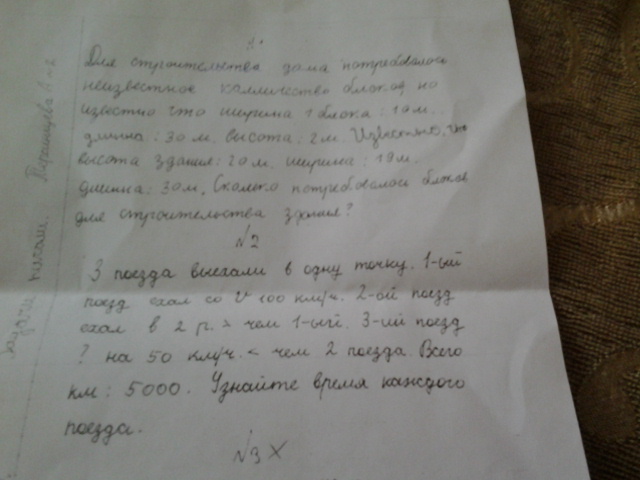 Для строительства дома потребовалось
неизвестное колличество блоков но
известно что ширина 1 блока: 19 м.
длинна: 30 м. высота: 2 м. Известно, что
высота здания: 20 м. ширина: 19 м.
длинна: 30 м. Сколько потребовалось блоков
для строительства здания?
№2
3 поезда выехали в одну точку. 1-ый
поезд ехал со V 100 км/ч. 2-ой поезд
ехал в 2 р. > чем 1-ый. 3-ий поезд
? на 50 км/ч. < чем 2 поезда. Всего
км: 5000. Узнайте время каждого
поезда.
№3 X
Задачи